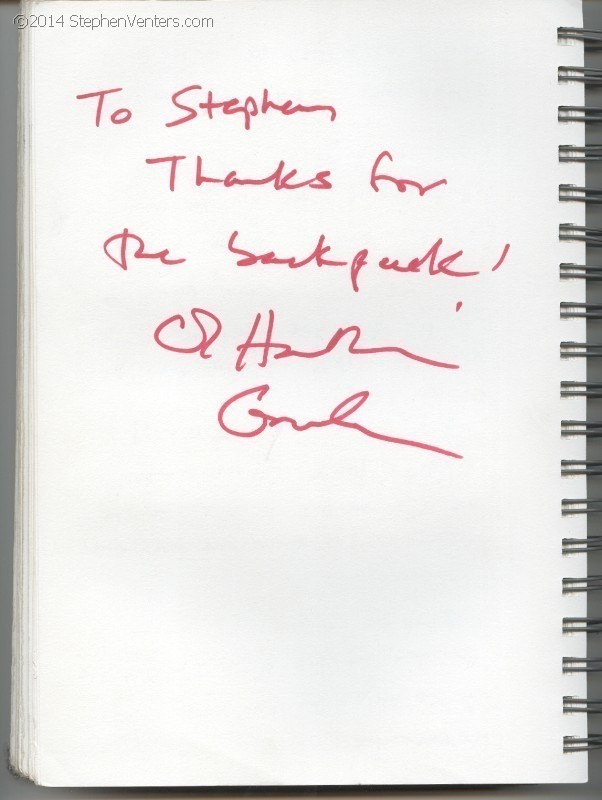 ©2014 StephenVenters.com
To Stephen
Thanks for
the backpack!